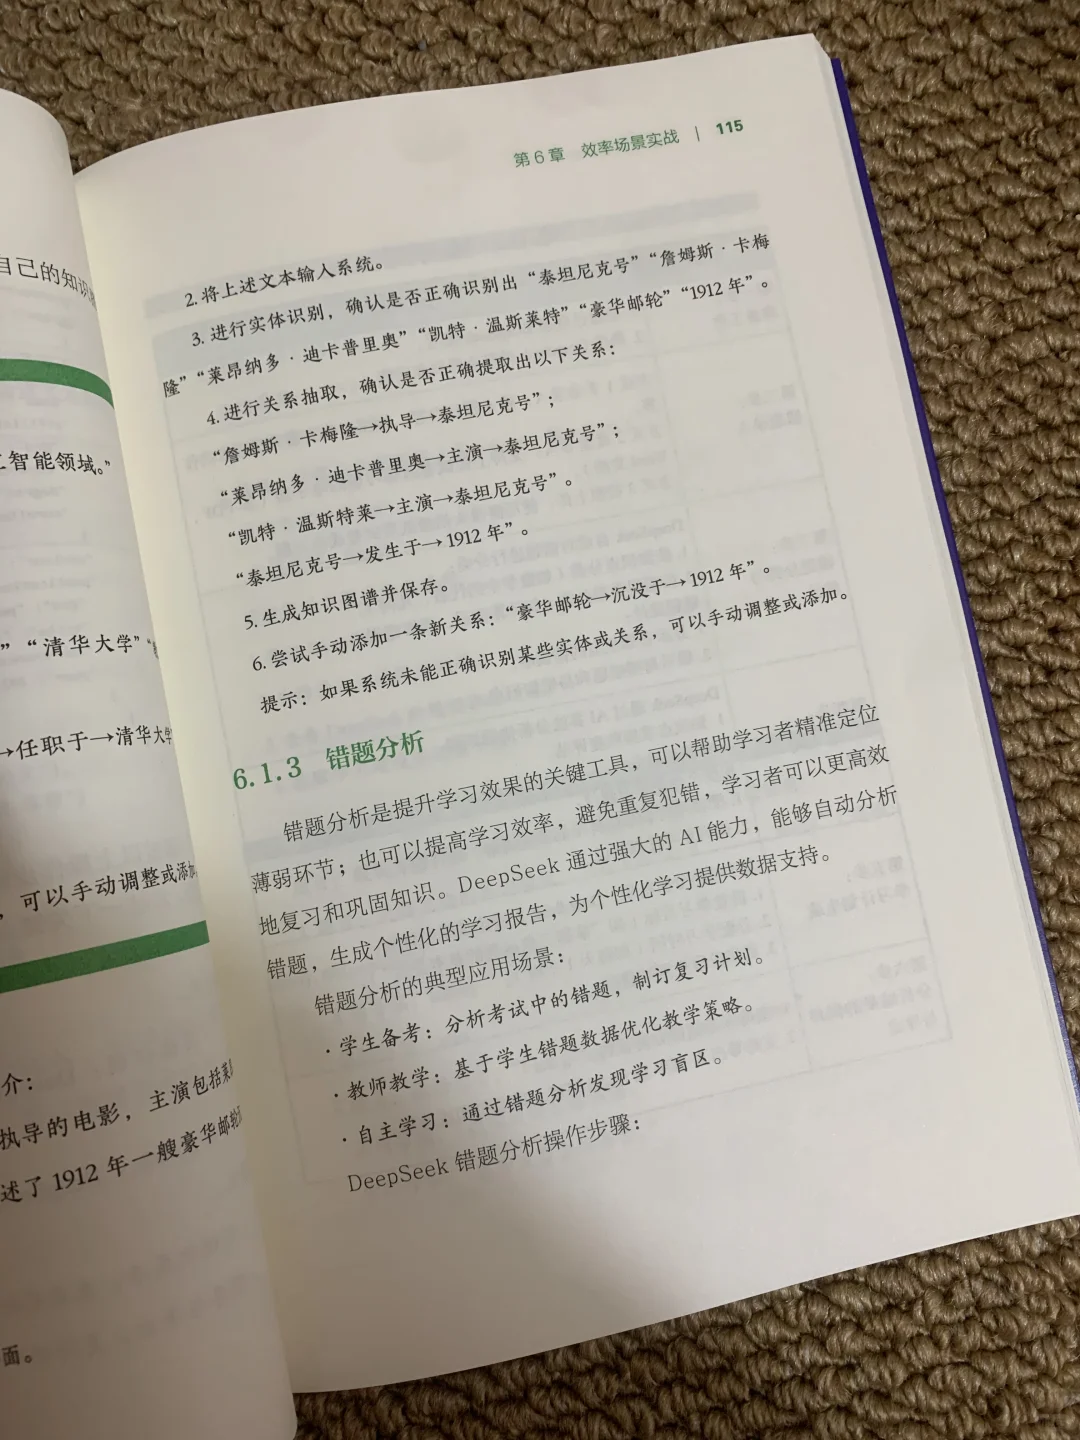 自己的知识
工智能领域。”
” “清华大学”
→任职于→清华大学
，可以手动调整或添加
介：
执导的电影，主演包括莱
述了 1912 年一艘豪华邮轮
面。
第 6 章 效率场景实战 | 115
2. 将上述文本输入系统。
3. 进行实体识别，确认是否正确识别出“泰坦尼克号”“詹姆斯 · 卡梅
隆”“莱昂纳多 · 迪卡普里奥”“凯特 · 温斯莱特”“豪华邮轮”“1912 年”。
4. 进行关系抽取，确认是否正确提取出以下关系：
“詹姆斯 · 卡梅隆→执导→泰坦尼克号”；
“莱昂纳多 · 迪卡普里奥→主演→泰坦尼克号”；
“凯特 · 温斯特莱→主演→泰坦尼克号”。
“泰坦尼克号→发生于→1912 年”。
5. 生成知识图谱并保存。
6. 尝试手动添加一条新关系：“豪华邮轮→沉没于→1912 年”。
提示：如果系统未能正确识别某些实体或关系，可以手动调整或添加。
6.1.3 错题分析
错题分析是提升学习效果的关键工具，可以帮助学习者精准定位
薄弱环节；也可以提高学习效率，避免重复犯错，学习者可以更高效
地复习和巩固知识。DeepSeek 通过强大的 AI 能力，能够自动分析
错题，生成个性化的学习报告，为个性化学习提供数据支持。
错题分析的典型应用场景：
· 学生备考：分析考试中的错题，制订复习计划。
· 教师教学：基于学生错题数据优化教学策略。
· 自主学习：通过错题分析发现学习盲区。
DeepSeek 错题分析操作步骤：